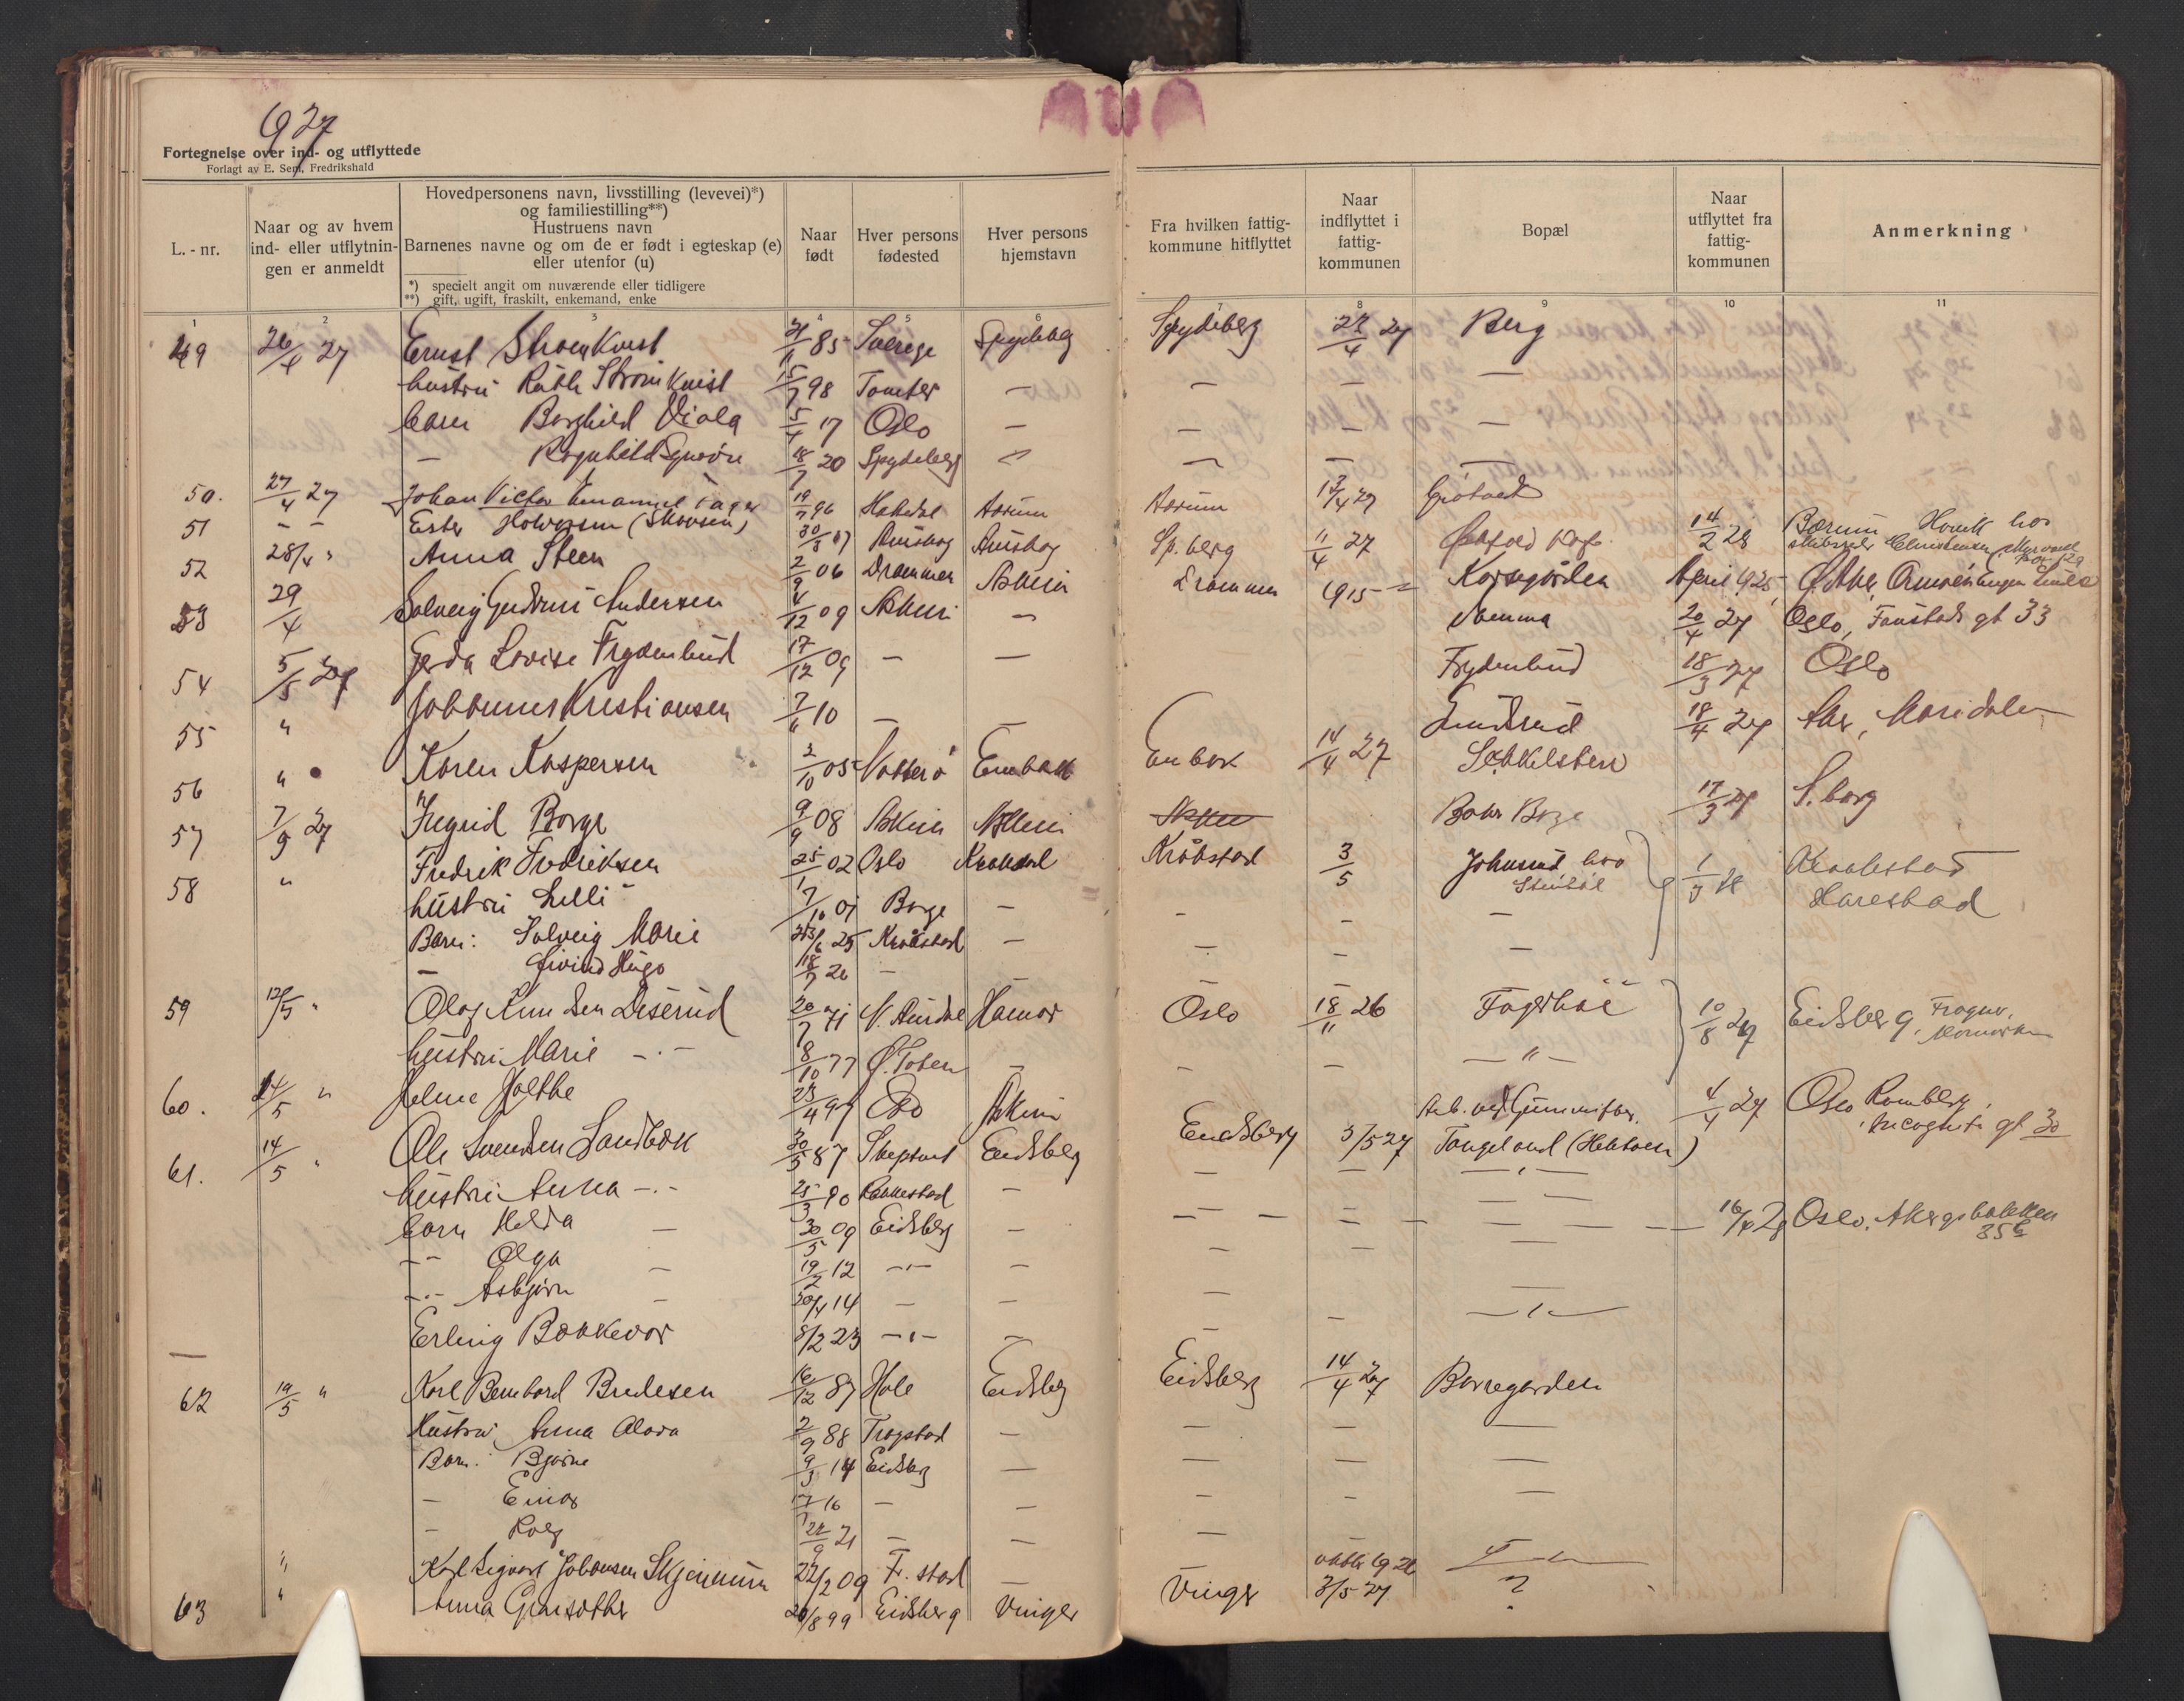 1927
Fortegnelse over ind- og utflyttede
Forlagt av E. Sem, Fredrikshald
L.-nr.
Naar og av hvem ind- eller utflytnin- gen er anmeldt
Hovedpersonens navn, livsstilling (levevei)*) og familiestilling**)
Hustruens navn
Barnenes navne og om de er født i egteskap (e) eller utenfor (u)
*) specielt angit om nuværende eller tidligere
**) gift, ugift, fraskilt, enkemand, enke
Naar født
Hver persons fødested
Hver persons hjemstavn
Fra hvilken fattig- kommune hitflyttet
Naar indflyttet i fattig- kommunen
Bopæl
Naar utflyttet fra fattig- kommunen
Anmerkning
1 2 3 4 5 6 7 8 9 10 11
49 26/4 27 Ernst Strømkvist 85 Sverige Spydeberg Spydeberg 27/4 27 Berg
hustru Ruth Strømkvist 15/7 98 Tomter — — — —
barn Borghild Viola 5/4 17 Oslo — — — —
— Ragnhild Synøve 18/7 20 Spydeberg — — — —
50. 27/4 27 Johan Victor Emanuel 19/7 96 Aurum 13/4 27
51 — — Ester Halvorsen 30/3 07 Sp.berg 11/4 27 Østfold 14/2 28 Bærum Høvik hos
52 28/4 " Anna Steen 2/9 06 Drammen Askim Drammen 1915 Korsegården April 1925
53 29/4 Solveig Gudrun Andersen 4/12 09 Askim — 20/4 27 Oslo, gt 33
54 5/5 27 Gerda Lovise Frydenlund 17/12 09 — — Frydenlund 18/3 27 Oslo
55 " Johannes Kristiansen 7/6 10 — — Lundsrud 18/4 27 Aker, Maridalen
56 " Karen Kaspersen 2/10 05 Enebak Enbak 14/4 27 Sekkelsten
57 7/9 27 Ingrid Borge 9/9 08 Askim Askim 17/3 27 S.borg
58 " Fredrik Fredriksen 25/1 02 Oslo Kråkstad Kråkstad 3/5 Johnsrud hos Kraakstad
hustru Lilli 7/10 01 Borge — - - — Harestad
Barn: Solveig Marie 25 Kråkstad — — — —
— Eivind Hugo 18/7 26 —
59 12/5 " Olaf Knudsen Liserud 20/7 71 N. Aurdal Hamar Oslo 18/11 26 10/8 27 Eidsberg
hustru Marie —·— 8/10 77 Ø. Toten — - — — " —
60. 14/5 " Helene Holthe 23/4 97 Oslo Askim 4/4 27 Oslo
gt 30
61. 14/5 " Ole Svendsen Sandbæk 30/5 87 Skiptvet Eidsberg Eidsberg 3/5 27
hustru Anna —·— 25/3 90 Rakkestad —
barn Helda — 30/5 09 Eidsberg — Oslo, Akersbakken
35
—·— Olga — 19/2 12 —·— —
—·— Asbjørn — 30/4 14 — —
Erling Bakkevar 8/2 23 —·— —
62 19/5 " Karl Bernhard Bredesen 16/12 87 Hole Eidsberg Eidsberg 14/4 27 Borregården
Hustru Anna Alova 2/9 88 Trøgstad — — — —
Barn: Bjarne 9/3 14 Eidsberg — — — —
— Einar 16 — — - - —
— Rolf 22/9 21 — — —
" Karl Sigvart Johansen 22/2 09 Fr. stad — oktbr 1926
63 " Anna 20/8 99 Eidsberg Vinger Vinger 3/5 27 ?